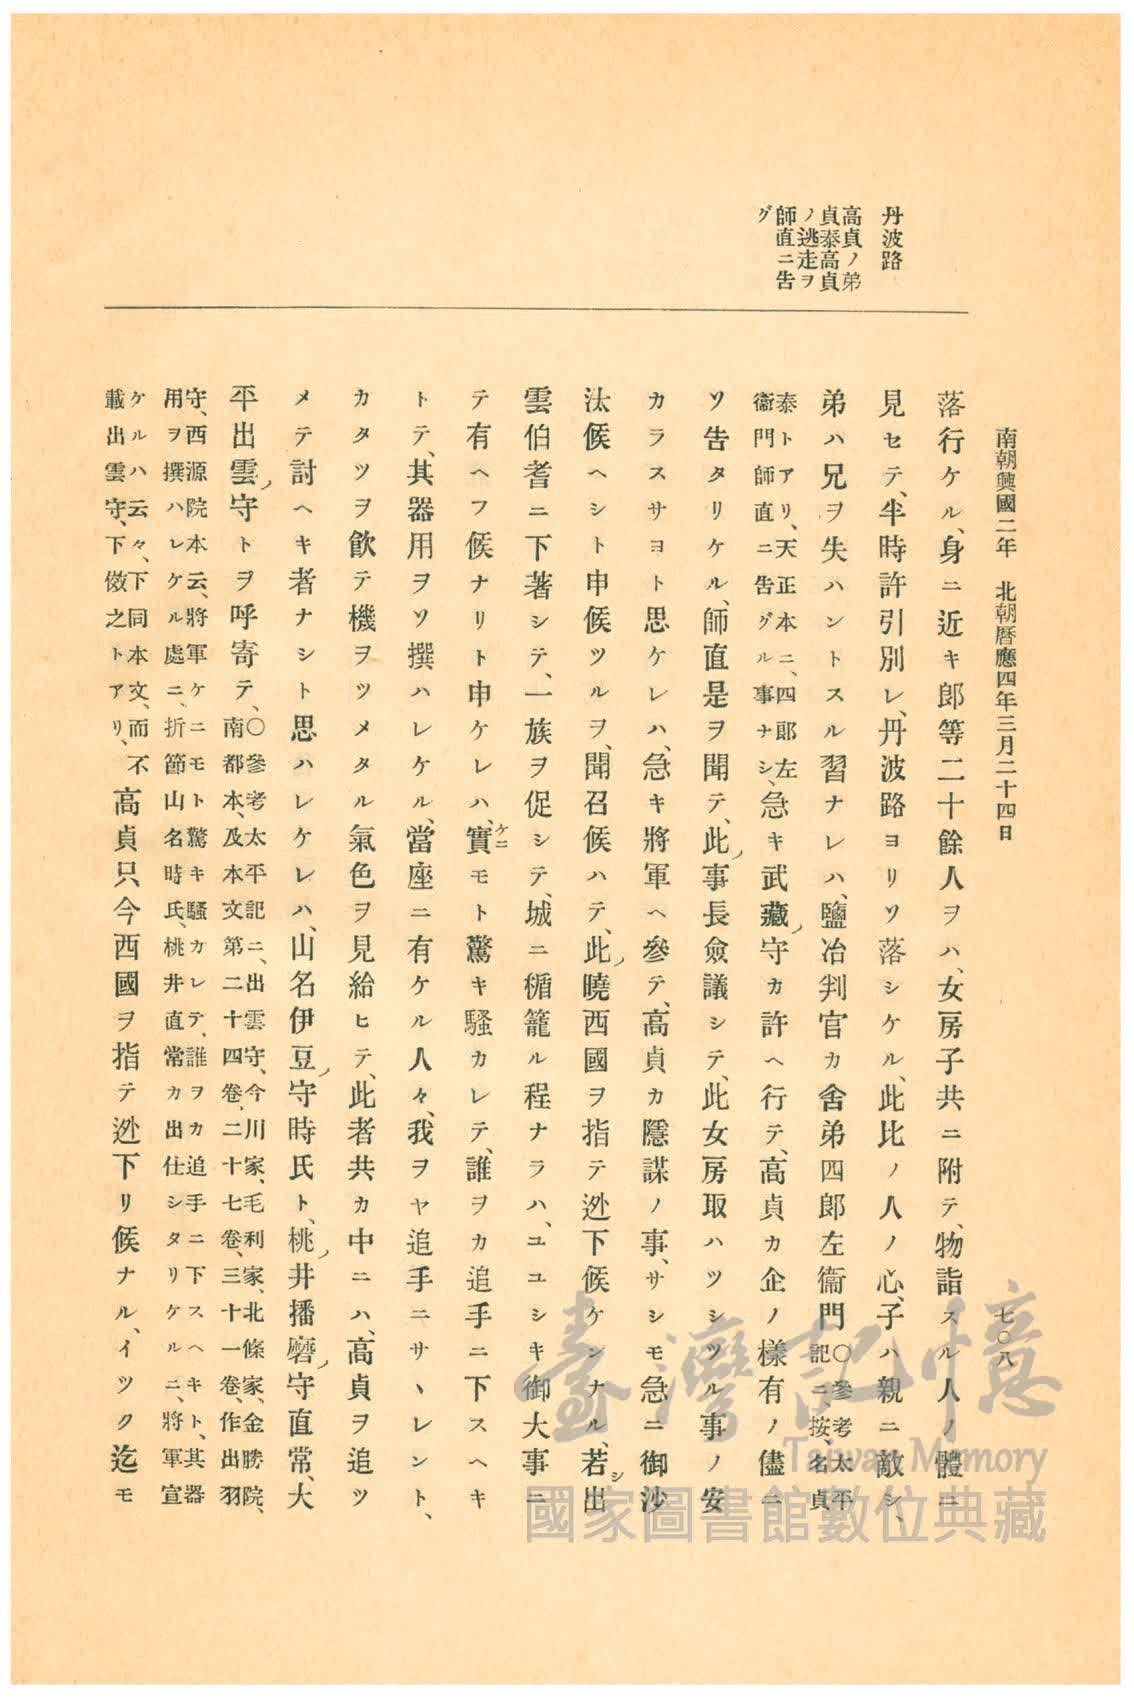 南朝興國二年　北朝曆應四年三月二十四日
七〇八
丹波路
高貞ノ弟
貞泰高貞
ノ逃走ヲ
師直ニ告
グ
落行ケル、身ニ近キ郎等二十餘人ヲハ、女房子共ニ附テ、物詣スル人ノ體ニ
見セテ、半時許引別レ、丹波路ヨリソ落シケル、此比ノ人ノ心、子ハ親ニ敵シ、
弟ハ兄ヲ失ハントスル習ナレハ、鹽冶判官カ舍弟四郎左衞門〇參考太平記ニ、按、名貞
泰トアリ、天正本ニ、四郞左衞門師直ニ告グル事ナシ、急キ武藏ノ守カ許ヘ行テ、高貞カ企ノ樣有ノ儘ニ
ソ告タリケル、師直是ヲ聞テ、此ノ事長僉議シテ、此女房取ハツシツル事ノ安
カラスサヨト思ケレハ、急キ將軍ヘ參テ、高貞カ隱謀ノ事、サシモ急ニ御沙
汰候ヘシト申候ツルヲ、聞召候ハテ、此ノ曉西國ヲ指テ迯下候ケンナル、若シ出
雲伯耆ニ下著シテ、一族ヲ促シテ、城ニ楯籠ル程ナラハ、ユユシキ御大事ニ
テ有ヘフ候ナリト申ケレハ、實ケニモト驚キ騷カレテ、誰ヲカ追手ニ下スヘキ
トテ、其器用ヲソ撰ハレケル、當座ニ有ケル人々、我ヲヤ追手ニサヽレント、
カタツヲ飮テ機ヲツメタル氣色ヲ見給ヒテ、此者共カ中ニハ、高貞ヲ追ツ
メテ討ヘキ者ナシト思ハレケレハ、山名伊豆ノ守時氏ト、桃ノ井播磨ノ守直常、大
平出雲ノ守トヲ呼寄テ、〇參考太平記ニ、出雲守、今川家、毛利家、北條家、金勝院、南都本、及本文第二十四卷、二十七卷、三十一卷、作出羽
守、西源院本云、將軍ケニモト驚キ騷カレテ、誰ヲカ追手ニ下スヘキト、其器用ヲ撰ハレケル處ニ、折節山名時氏、桃井直常カ出仕シタリケルニ、將軍宣
ケルハ云々、下同本文、而不載出雲守、下倣之トアリ、高貞只今西國ヲ指テ迯下リ候ナル、イツク迄モ
臺灣記憶
Taiwan Memory
國家圖書館數位典藏